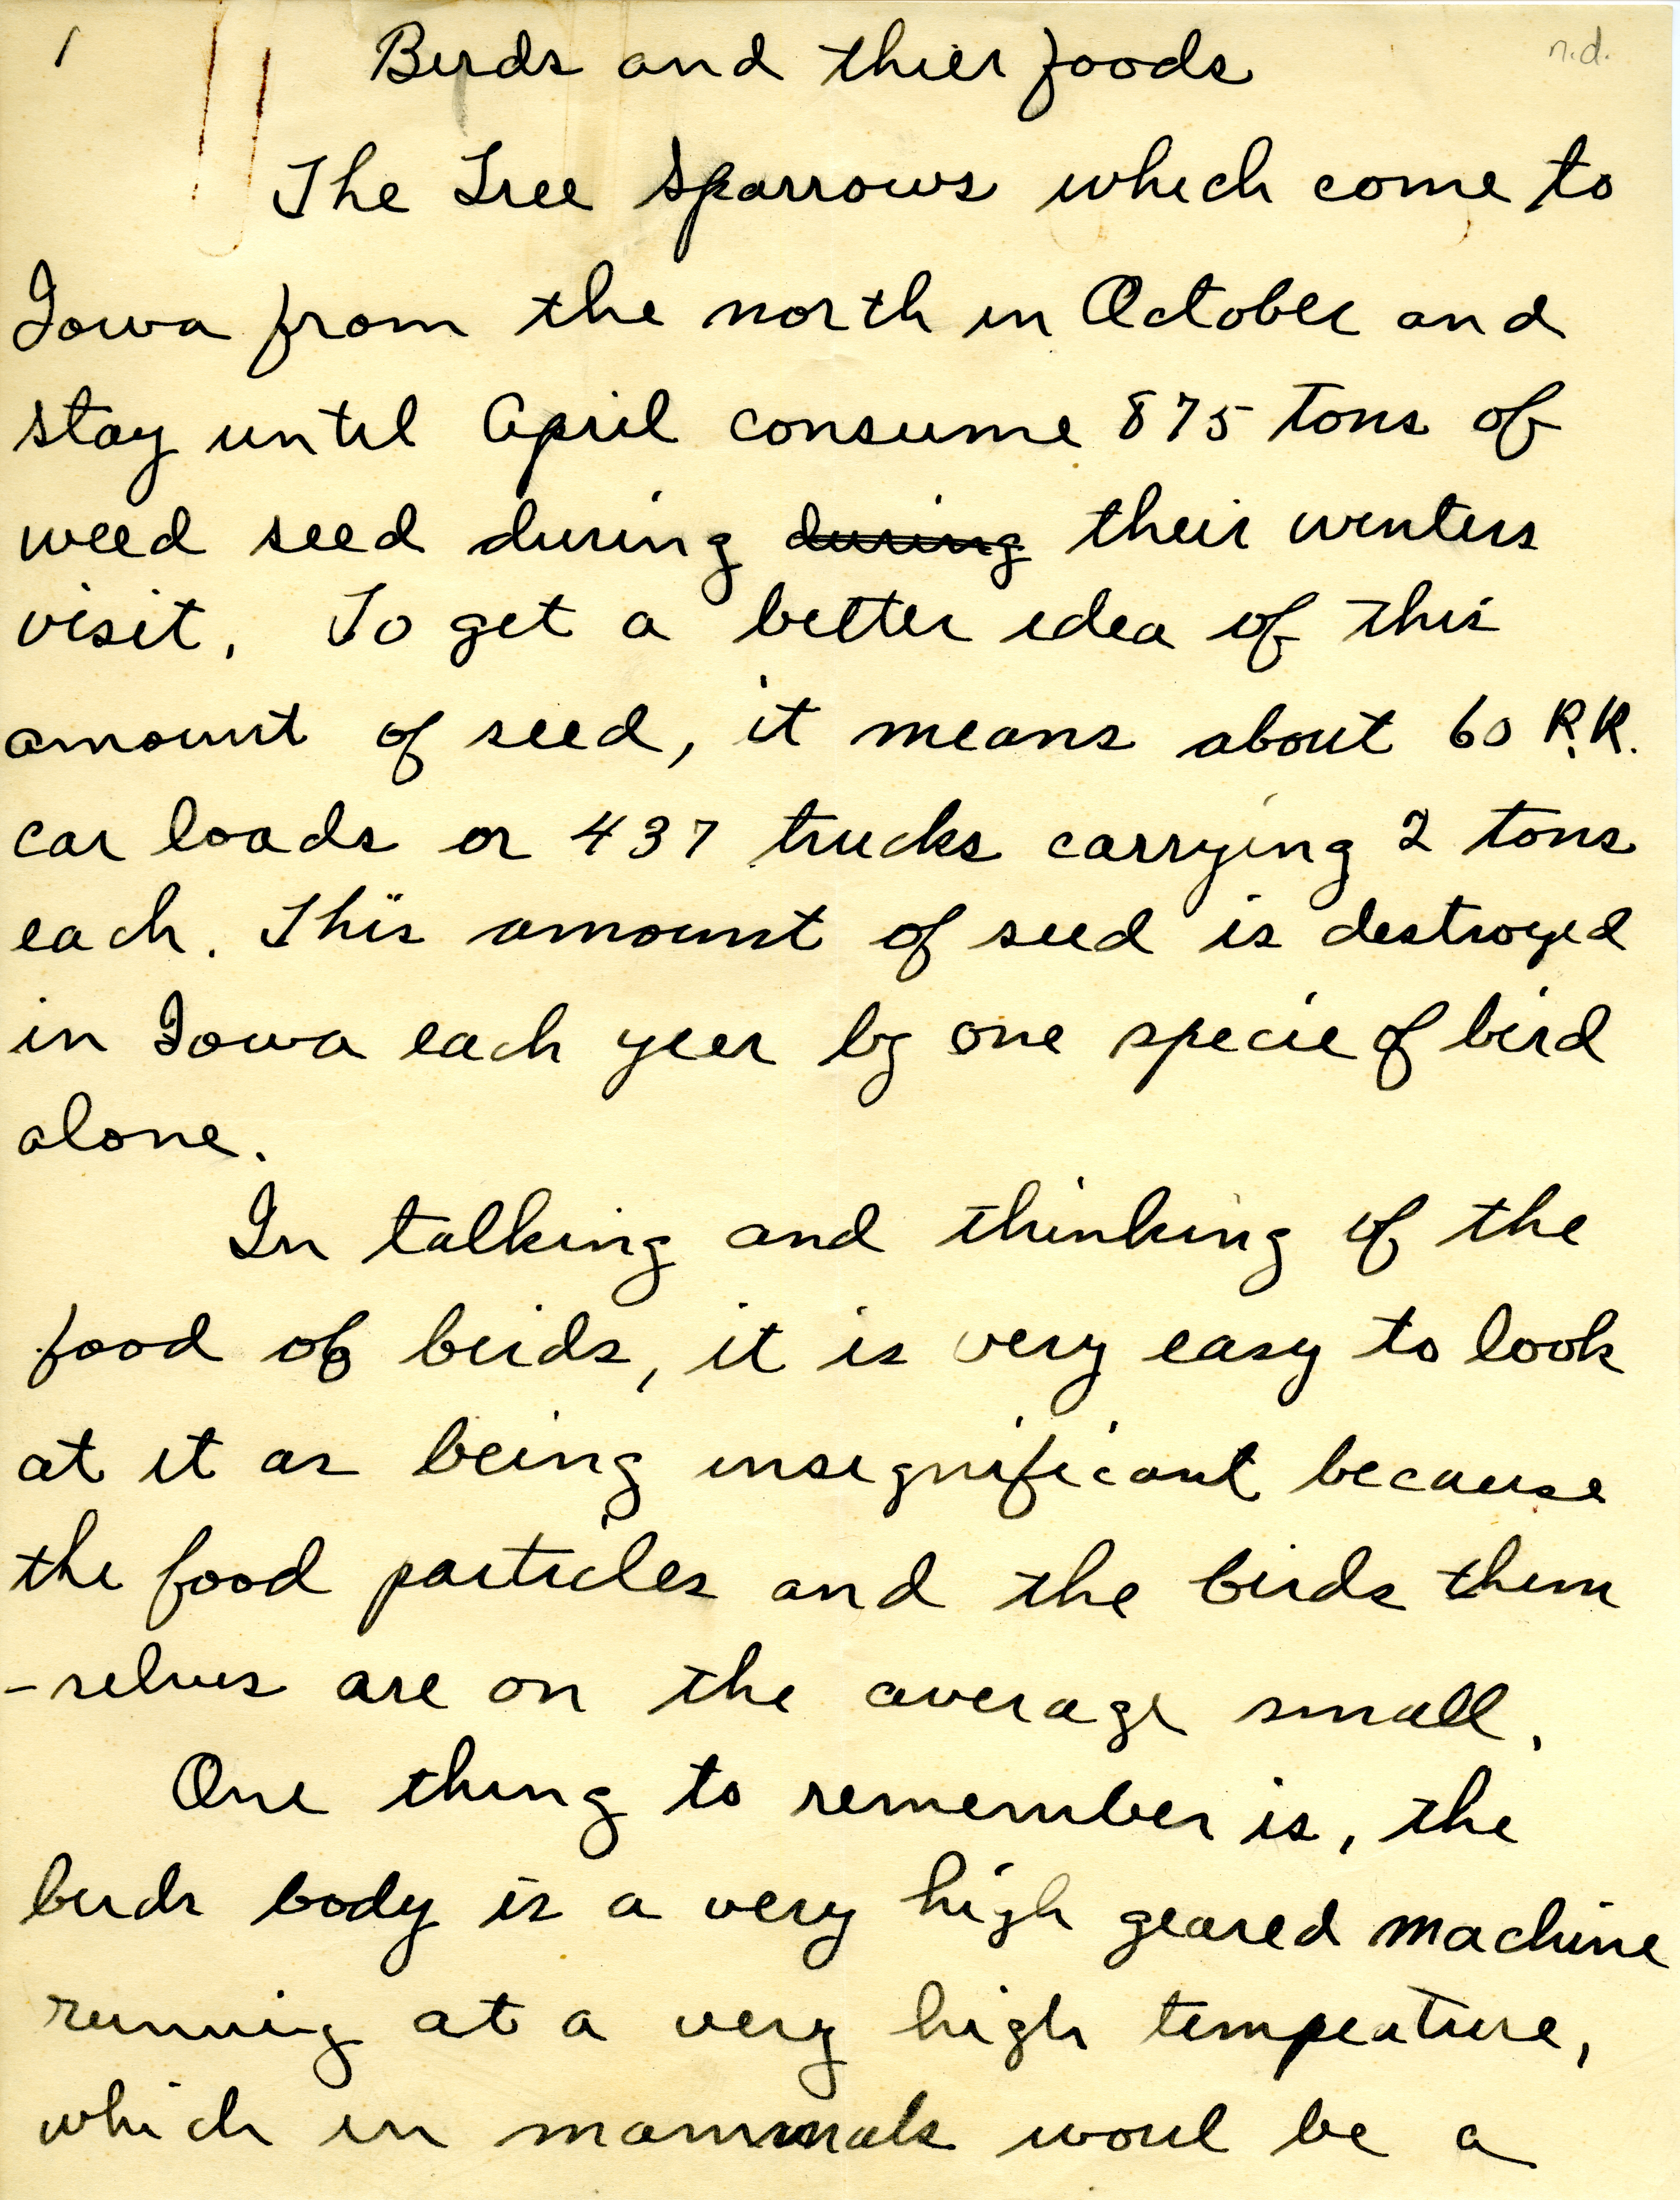 1 Birds and thier foods n.d.
The Tree Sparrows which come to
Iowa from the north in October and
stay until April consume 875 tons of
weed seed during during their winters
visit. To get a better idea of this
amount of seed, it means about 60 R.R.
car loads or 437 trucks carrying 2 tons
each. This amount of seed is destroyed
in Iowa each year by one specie of bird
alone.
In talking and thinking of the
food of birds, it is very easy to look
at it as being insignificant because
the food particles and the birds them
-selves are on the average small.
One thing to remember is, the
birds body is a very high geared machine
running at a very high tempeature,
which in mammals woul be a